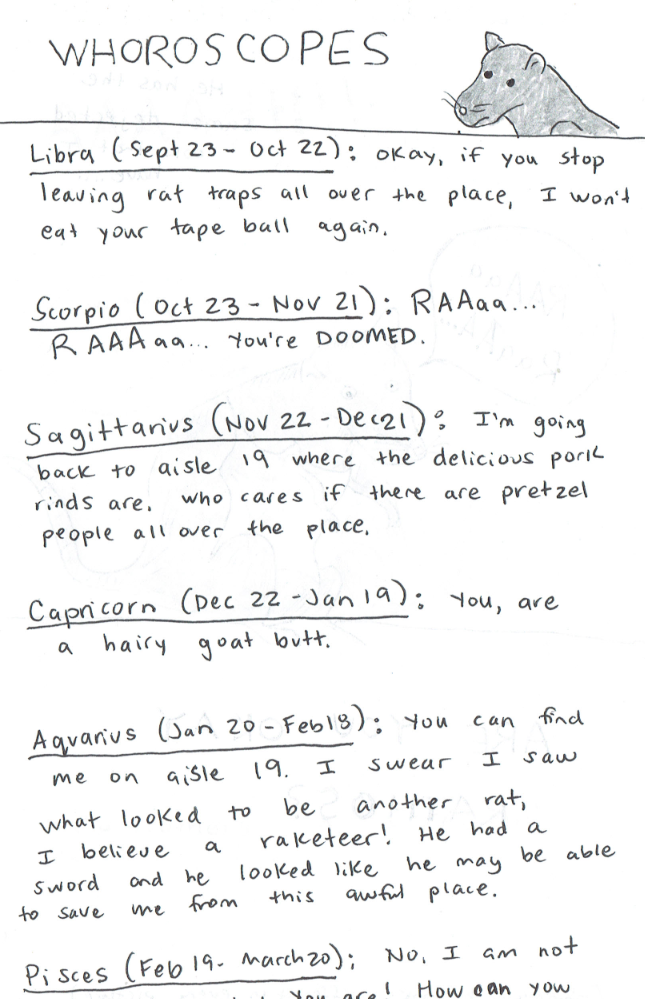 WHOROSCOPES
Libra (Sept 23 - Oct 22): okay, if you stop
leaving rat traps all over the place, I won't
eat your tape ball again.
Scorpio (Oct 23 - Nov 21): RAAaa...
RAAAaa... You're DOOMED.
Sagittarius (Nov 22 - Dec 21): I'm going
back to aisle 19 where the delicious pork
rinds are. who cares if there are pretzel
people all over the place.
Capricorn (Dec 22 - Jan 19): You, are
a hairy goat butt.
Aqvarius (Jan 20 - Feb 18): You can find
me on aisle 19. I swear I saw
what looked to be another rat,
I believe a raketeer! He had a
sword and he looked like he may be able
to save me from this awful place.
Pisces (Feb 19 - March 20): No, I am not
You are! How can you